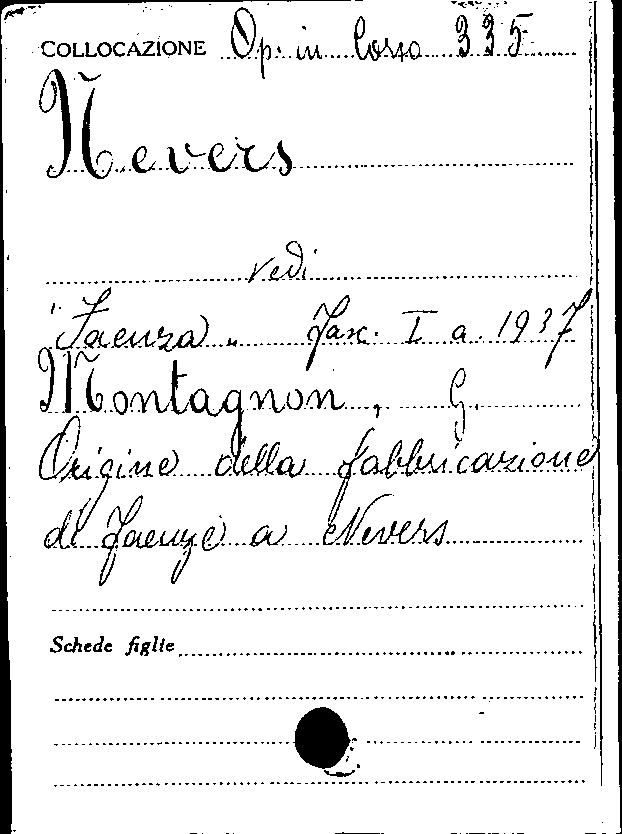 COLLOCAZIONE Op. in Corso 335
Nevers
vedi
"Faenza„ Fasc. I a. 1937
Montagnon, G.
Origine della fabbricazione
di faenze a Nevers
Schede figlie